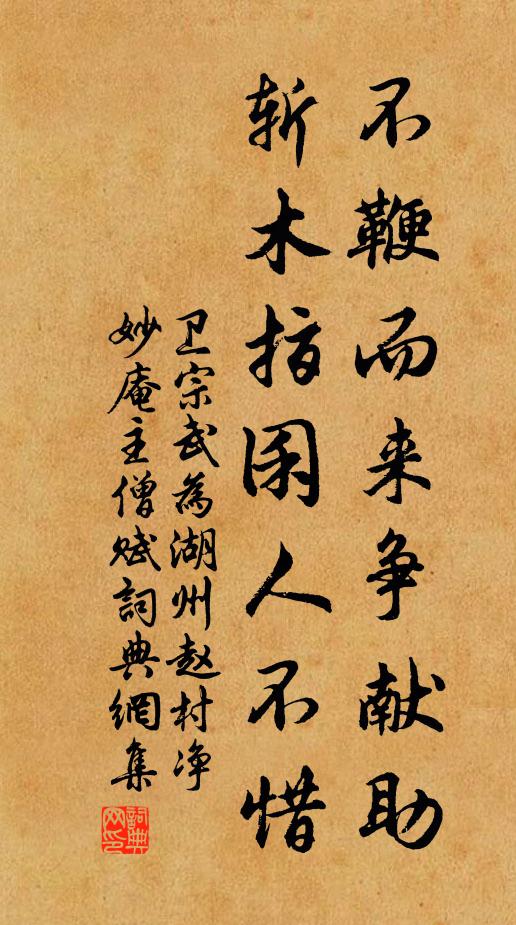 不鞭而来争献助
斩木指囷人不惜
卫宗武為湖州赵村净
妙庵主僧赋詞典網集
詞典
网印